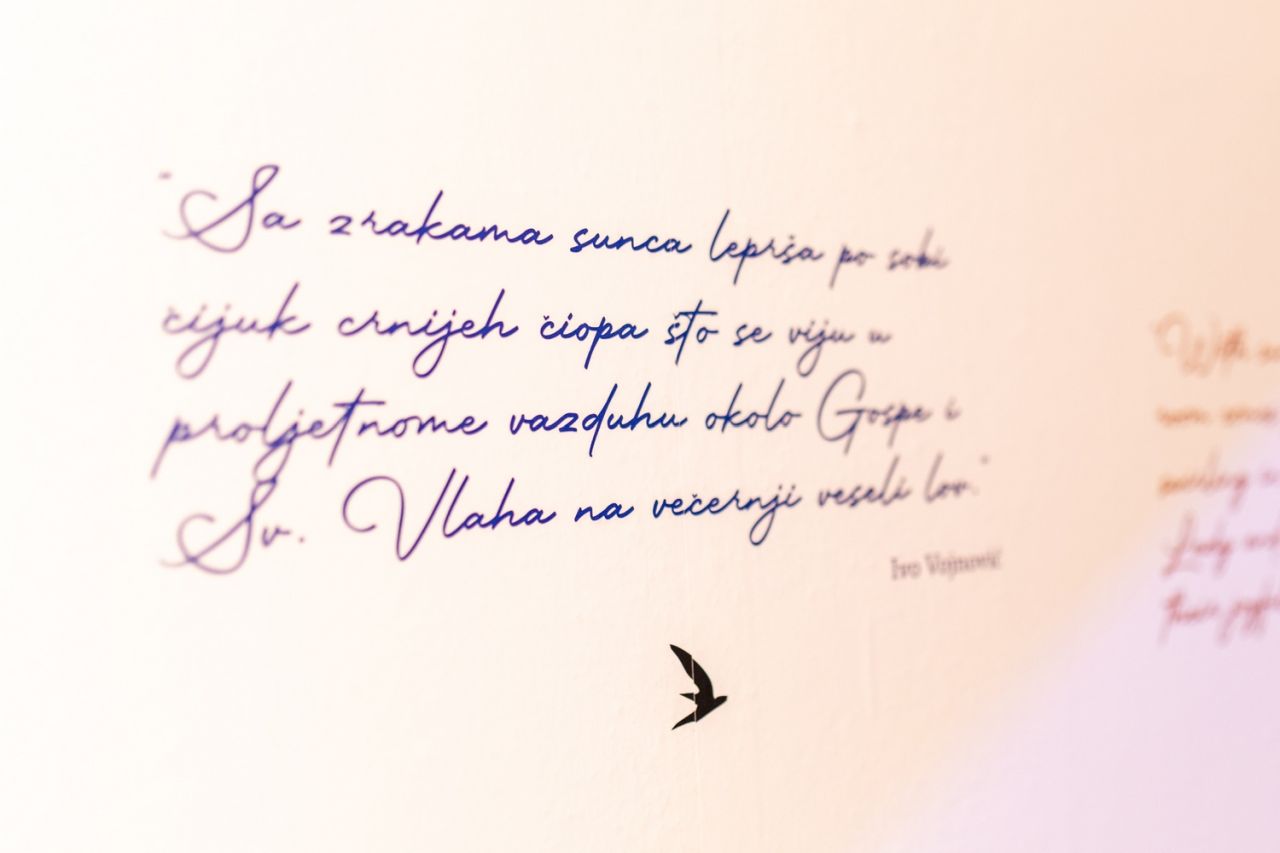 "Sa zrakama sunca leprša po sobi
čijuk crnijeh čiopa što se viju u
proljetnome vazduhu okolo Gospe i
Sv. Vlaha na večernji veseli lov."
Ivo Vojnović
With
Lady
their